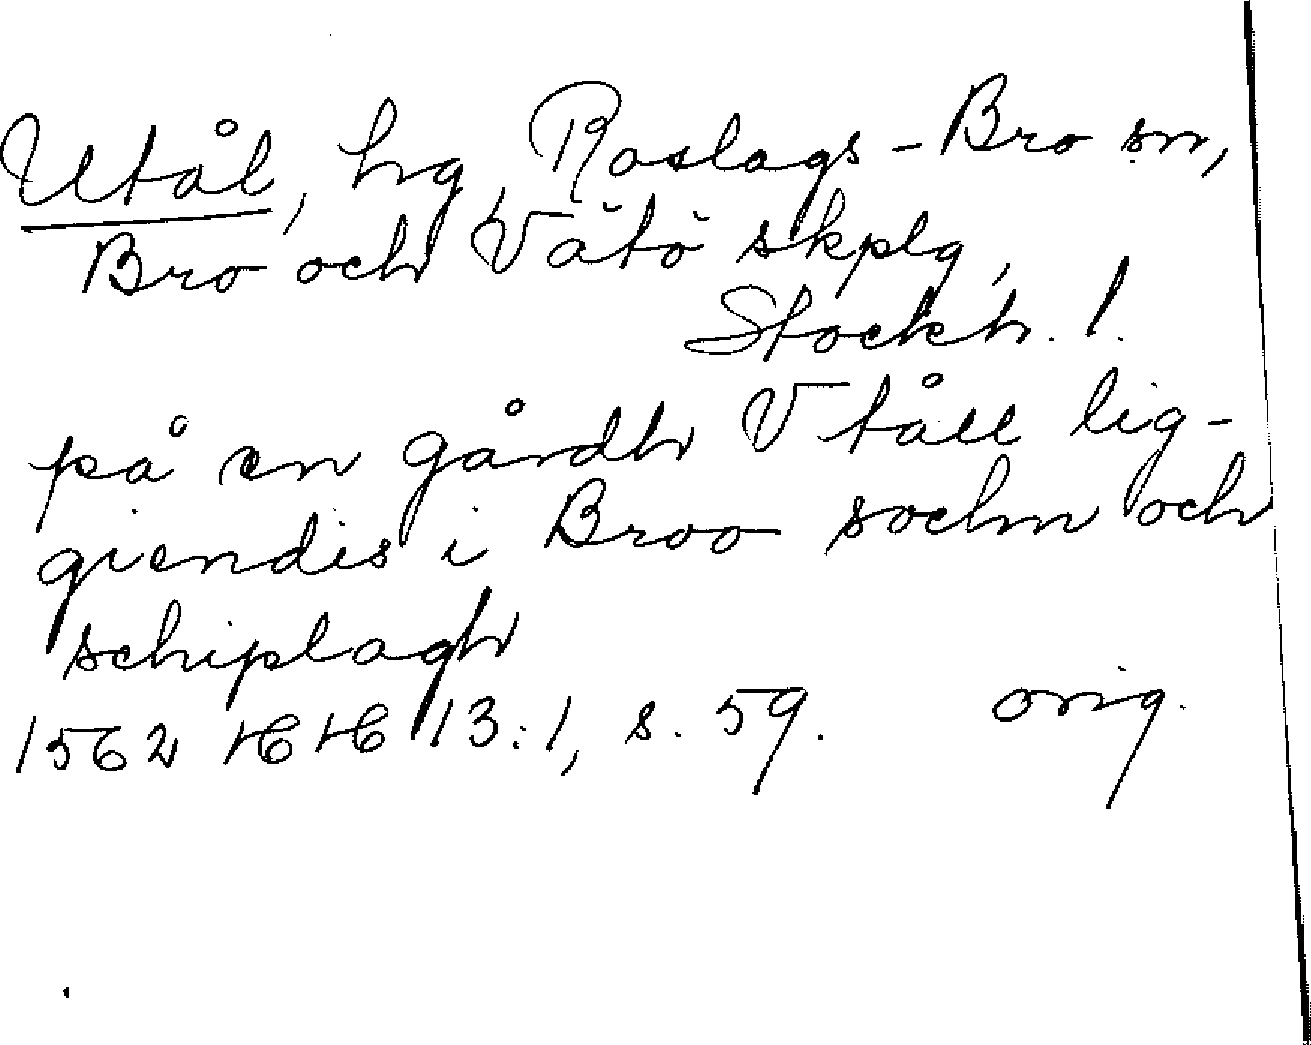 Utål, hg, Roslags-Bro sn,
Bro och Vätö skplg,
Stockh. l.
på en gårdh Vtåll lig-
giendis i Broo sochn och
schiplagh
1562 HH 13:1, s. 59. orig.